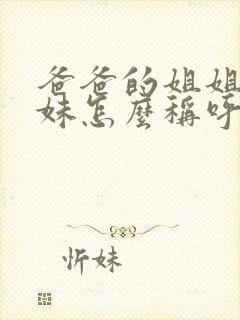 爸爸的姐姐
妹怎麼稱呼
忻妹